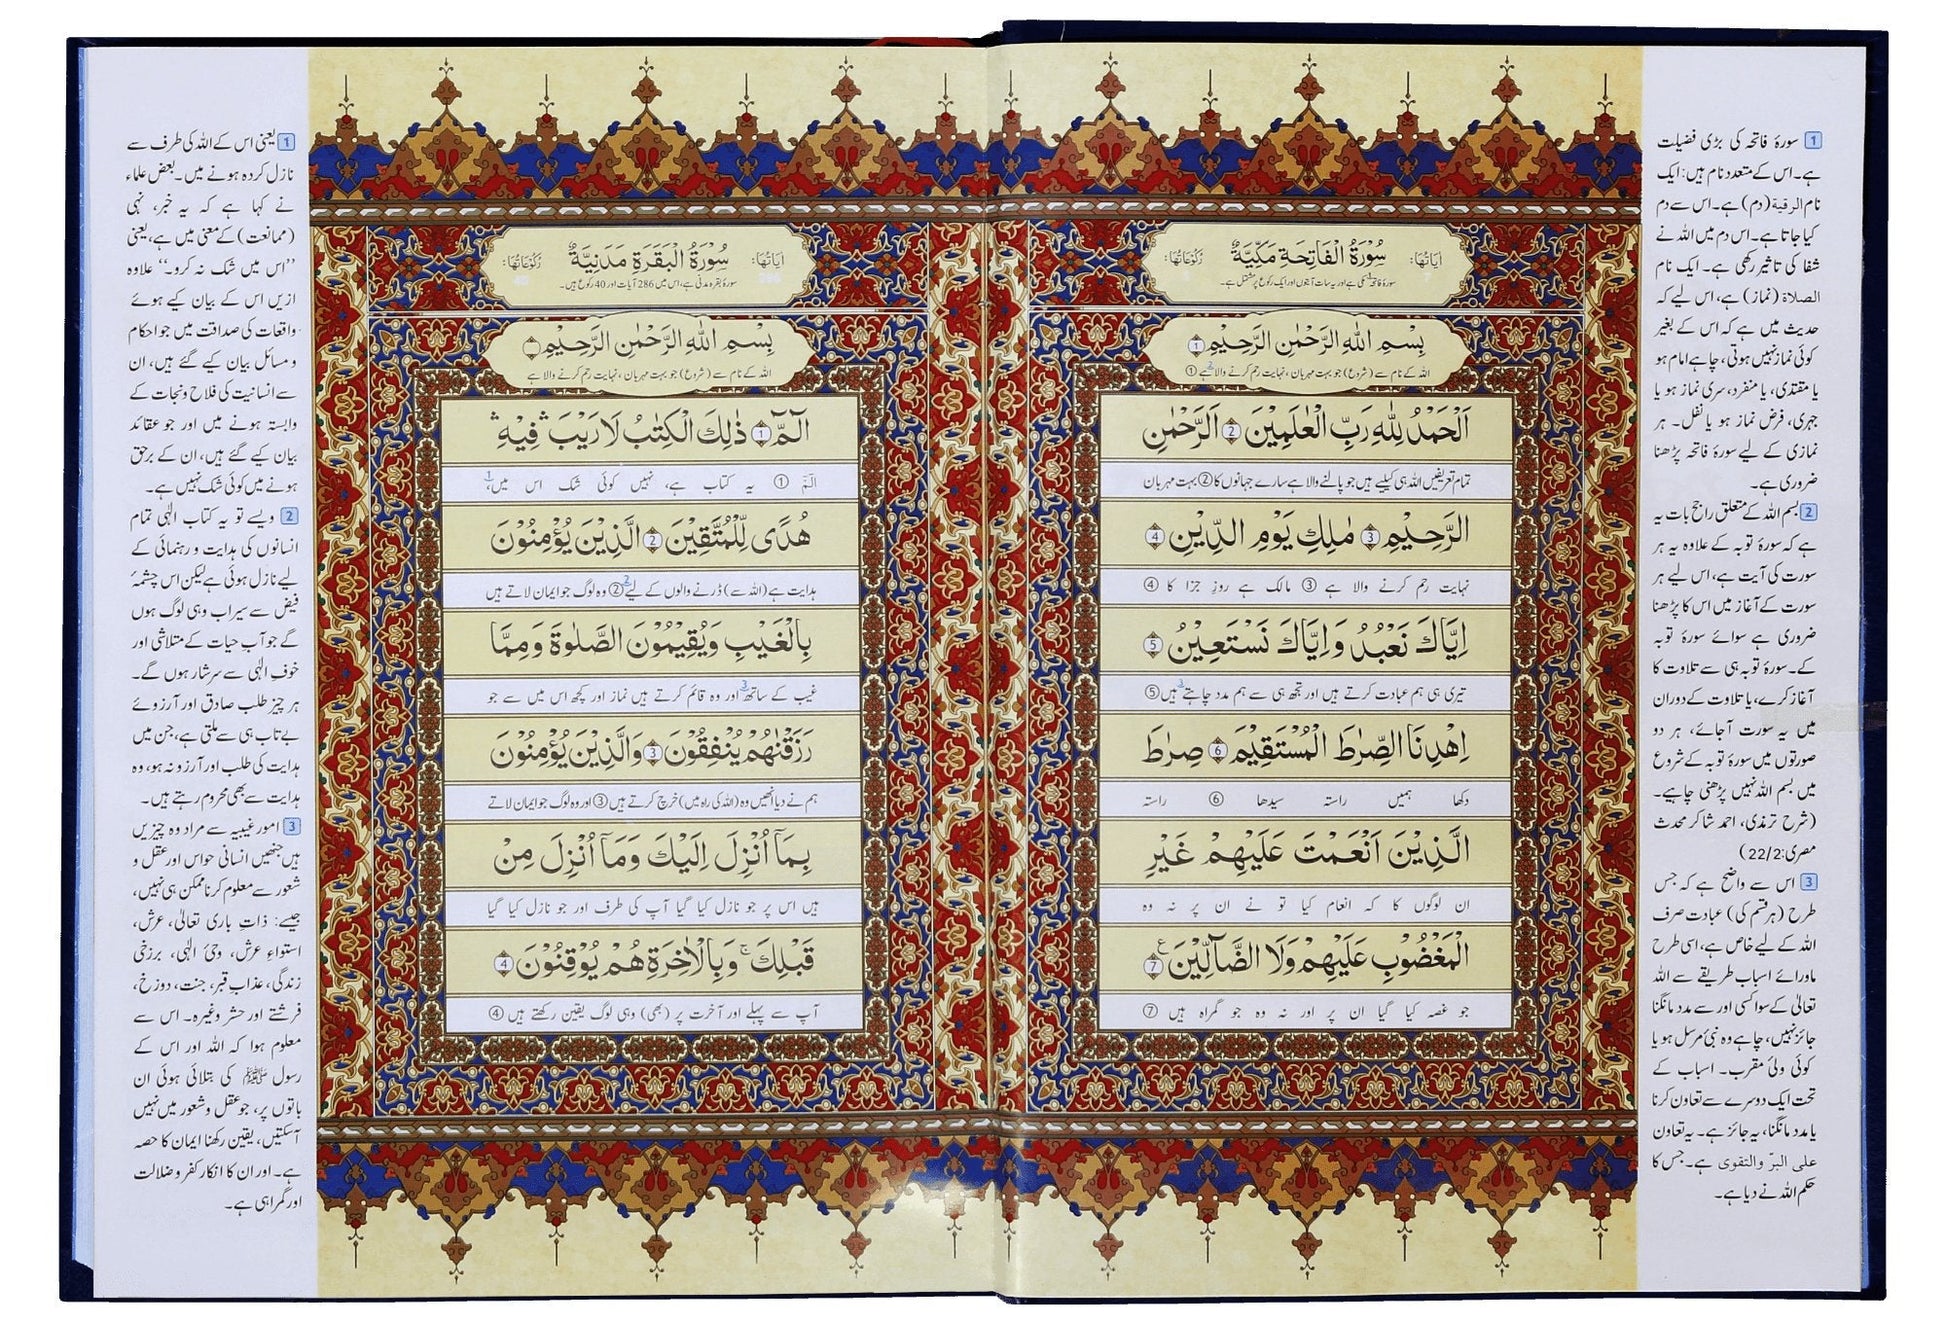 سُوْرَةُ الْفَاتِحَةِ مَكِّيَّةٌ
اٰیَاتُهَا:
رُكُوْعَاتُهَا:
سورۂ فاتحہ مکی ہے اور یہ سات آیتوں اور ایک رکوع پر مشتمل ہے۔
بِسْمِ اللّٰهِ الرَّحْمٰنِ الرَّحِيْمِ 1
اللہ کے نام سے (شروع) جو بہت مہربان، نہایت رحم کرنے والا ہے ①
اَلْحَمْدُ لِلّٰهِ رَبِّ الْعٰلَمِيْنَ 2 اَلرَّحْمٰنِ
تمام تعریفیں اللہ ہی کیلیے ہیں جو پالنے والا ہے سارے جہانوں کا ② بہت مہربان
الرَّحِيْمِ 3 مٰلِكِ يَوْمِ الدِّيْنِ 4
نہایت رحم کرنے والا ہے ③ مالک ہے روزِ جزا کا ④
اِيَّاكَ نَعْبُدُ وَاِيَّاكَ نَسْتَعِيْنُ 5
تیری ہی ہم عبادت کرتے ہیں اور تجھ ہی سے ہم مدد چاہتے ہیں 3 ⑤
اِهْدِنَا الصِّرٰطَ الْمُسْتَقِيْمَ 6 صِرٰطَ
دکھا ہمیں راستہ سیدھا ⑥ راستہ
الَّذِيْنَ اَنْعَمْتَ عَلَيْهِمْ غَيْرِ
ان لوگوں کا کہ انعام کیا تو نے ان پر نہ وہ
الْمَغْضُوْبِ عَلَيْهِمْ وَلَا الضَّآلِّيْنَ ع 7
جو غصہ کیا گیا ان پر اور نہ وہ جو گمراہ ہیں ⑦
1 سورۂ فاتحہ کی بڑی فضیلت
ہے۔ اس کے متعدد نام ہیں: ایک
نام الرقیة (دم) ہے۔ اس سے دم
کیا جاتا ہے۔ اس دم میں اللہ نے
شفا کی تاثیر رکھی ہے۔ ایک نام
الصلاة (نماز) ہے، اس لیے کہ
حدیث میں ہے کہ اس کے بغیر
کوئی نماز نہیں ہوتی، چاہے امام ہو
یا مقتدی، یا منفرد، سری نماز ہو یا
جہری، فرض نماز ہو یا نفل۔ ہر
نمازی کے لیے سورۂ فاتحہ پڑھنا
ضروری ہے۔
2 بسم اللہ کے متعلق راجح بات یہ
ہے کہ سورۂ توبہ کے علاوہ یہ ہر
سورت کی آیت ہے، اس لیے ہر
سورت کے آغاز میں اس کا پڑھنا
ضروری ہے سوائے سورۂ توبہ
کے۔ سورۂ توبہ ہی سے تلاوت کا
آغاز کرے، یا تلاوت کے دوران
میں یہ سورت آجائے، ہر دو
صورتوں میں سورۂ توبہ کے شروع
میں بسم اللہ نہیں پڑھنی چاہیے۔
(شرح ترمذی، احمد شاکر محدث
مصری: 22/2)
3 اس سے واضح ہے کہ جس
طرح (ہر قسم کی) عبادت صرف
اللہ کے لیے خاص ہے، اسی طرح
ماورائے اسباب طریقے سے اللہ
تعالیٰ کے سوا کسی اور سے مدد مانگنا
جائز نہیں، چاہے وہ نبیٔ مرسل ہو یا
کوئی ولیٔ مقرب۔ اسباب کے
تحت ایک دوسرے سے تعاون کرنا
یا مدد مانگنا، یہ جائز ہے۔ یہ تعاون
علی البرّ والتقوی ہے۔ جس کا
حکم اللہ نے دیا ہے۔
سُوْرَةُ الْبَقَرَةِ مَدَنِيَّةٌ
اٰیَاتُهَا:
رُكُوْعَاتُهَا:
سورۂ بقرہ مدنی ہے، اس میں 286 آیات اور 40 رکوع ہیں۔
بِسْمِ اللّٰهِ الرَّحْمٰنِ الرَّحِيْمِ
اللہ کے نام سے (شروع) جو بہت مہربان، نہایت رحم کرنے والا ہے
الٓمّٓ 1 ذٰلِكَ الْكِتٰبُ لَا رَيْبَ ۛ فِيْهِ ۛ
الٓمّٓ ① یہ کتاب ہے، نہیں کوئی شک اس میں، 1
هُدًى لِّلْمُتَّقِيْنَ 2 الَّذِيْنَ يُؤْمِنُوْنَ
ہدایت ہے (اللہ سے) ڈرنے والوں کے لیے 2 ② وہ لوگ جو ایمان لاتے ہیں
بِالْغَيْبِ وَيُقِيْمُوْنَ الصَّلٰوةَ وَمِمَّا
غیب کے ساتھ 3 اور وہ قائم کرتے ہیں نماز اور کچھ اس میں سے جو
رَزَقْنٰهُمْ يُنْفِقُوْنَ 3 وَالَّذِيْنَ يُؤْمِنُوْنَ
ہم نے دیا انھیں وہ (اللہ کی راہ میں) خرچ کرتے ہیں ③ اور وہ لوگ جو ایمان لاتے
بِمَآ اُنْزِلَ اِلَيْكَ وَمَآ اُنْزِلَ مِنْ
ہیں اس پر جو نازل کیا گیا آپ کی طرف اور جو نازل کیا گیا
قَبْلِكَ ۚ وَبِالْاٰخِرَةِ هُمْ يُوْقِنُوْنَ 4
آپ سے پہلے اور آخرت پر (بھی) وہی لوگ یقین رکھتے ہیں ④
1 یعنی اس کے اللہ کی طرف سے
نازل کردہ ہونے میں۔ بعض علماء
نے کہا ہے کہ یہ خبر، نہی
(ممانعت) کے معنی میں ہے، یعنی
’’اس میں شک نہ کرو۔‘‘ علاوہ
ازیں اس کے بیان کیے ہوئے
واقعات کی صداقت میں جو احکام
و مسائل بیان کیے گئے ہیں، ان
سے انسانیت کی فلاح و نجات کے
وابستہ ہونے میں اور جو عقائد
بیان کیے گئے ہیں، ان کے برحق
ہونے میں کوئی شک نہیں ہے۔
2 ویسے تو یہ کتاب الٰہی تمام
انسانوں کی ہدایت و رہنمائی کے
لیے نازل ہوئی ہے لیکن اس چشمۂ
فیض سے سیراب وہی لوگ ہوں
گے جو آب حیات کے متلاشی اور
خوفِ الٰہی سے سرشار ہوں گے۔
ہر چیز طلب صادق اور آرزوئے
بے تاب ہی سے ملتی ہے، جن میں
ہدایت کی طلب اور آرزو نہ ہو، وہ
ہدایت سے بھی محروم رہتے ہیں۔
3 امور غیبیہ سے مراد وہ چیزیں
ہیں جنھیں انسانی حواس اور عقل و
شعور سے معلوم کرنا ممکن ہی نہیں،
جیسے: ذاتِ باری تعالیٰ، عرش،
استواءِ عرش، وحیٔ الٰہی، برزخی
زندگی، عذابِ قبر، جنت، دوزخ،
فرشتے اور حشر وغیرہ۔ اس سے
معلوم ہوا کہ اللہ اور اس کے
رسول ﷺ کی بتلائی ہوئی ان
باتوں پر، جو عقل و شعور میں نہیں
آسکتیں، یقین رکھنا ایمان کا حصہ
ہے۔ اور ان کا انکار کفر و ضلالت
اور گمراہی ہے۔